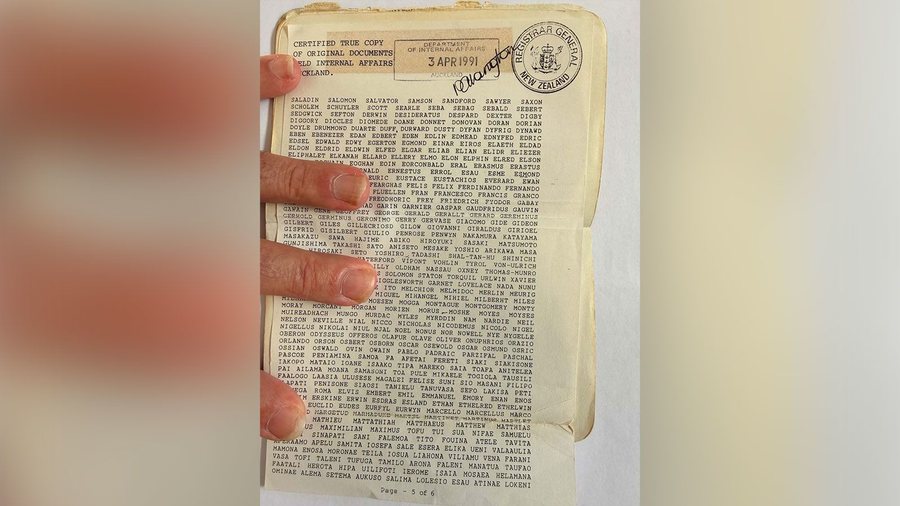 CERTIFIED TRUE COPY
OF ORIGINAL DOCUMENTS
HELD INTERNAL AFFAIRS
AUCKLAND.
DEPARTMENT
OF INTERNAL AFFAIRS
3 APR 1991
AUCKLAND
REGISTRAR GENERAL
NEW ZEALAND
SALADIN SALOMON SALVATOR SAMSON SANDFORD SAWYER SAXON
SCHOLEM SCHUYLER SCOTT SEARLE SEBA SEBAG SEBALD SEBERT
SEDGWICK SEFTON DERWIN DESIDERATUS DESPARD DEXTER DIGBY
DIGGORY DIOCLES DIOMEDE DOANE DONNET DONOVAN DORAN DORIAN
DOYLE DRUMMOND DUARTE DUFF DURWARD DUSTY DYFAN DYFRIG DYNAWD
EBEN EBENEZER EDAN EDBERT EDEN EDLIN EDMEAD EDNYFED EDRIC
EDSEL EDWALD EDWY EGERTON EGMOND EINAR EIROS ELAETH ELDAD
ELDON ELDRID ELDWIN ELFED ELGAR ELIAB ELIAN ELIDR ELIEZER
ELIPHALET ELKANAH ELLARD ELLERY ELMO ELON ELPHIN ELRED ELSON
EOGHAN EOIN EORCONBALD ERAL ERASMUS ERASTUS
ERNESTUS ERROL ESAU ESME ESMOND
EURIC EUSTACE EUSTACHIOS EVERARD EWAN
FEARGHAS FELIS FELIX FERDINANDO FERNANDO
FLUELLEN FRAN FRANCESCO FRANCIS GRANCO
FREODHORIC FREY FRIEDRICH FYODOR GABAY
GARIN GARNIER GASPAR GAUDFRIDUS GAUVIN
GAWAIN GENE GEOFFREY GEORGE GERALD GERALLT GERARD GEREMINUS
GERHOLD GERMINUS GERONIMO GERRY GERVASE GIACOMO GIDE GIDEON
GILBERT GILES GILLECRIOSD GILOW GIOVANNI GIRALDUS GIRIOEL
GISFRID GISILBERT GIULIO PENROSE PENWYN NAKAMURA KATAYAMA
MASAKAZU SAWA HAJIME ABIKO HIROYUKI SASAKI MATSUMOTO
GUNJISHIMA TAKASHI SATO ANISETO MESAKE YOSHIO ARIKAWA MASA
HIROSAKI SETO YOSHIRO TADASHI SHAL-TAN-HU SHINICHI
VIPONT VOHLIN TYROL VON-ULRICH
OLDHAM NASSAU OXNEY THOMAS-MUNRO
SOLOMON STATON TORQUIL URLWIN XAVIER
WIGGLESWORTH GARNET LOVELACE NADA NUNU
ITO MELCHIOR MELMIDOC MERLIN MEURIG
MIGUEL MIHANGEL MIHIEL MILBERT MILES
MOESEN MOGGA MONTAGUE MONTGOMERY MONTY
MORAY MORCANT MORGAN MORIEN MORUS MOSHE MOYES MOYSES
MUIREADHACH MUNGO MURDAC MYLES MYRDDIN NAM NARDIE NEIL
NELSON NEVILLE NIAL NICCO NICHOLAS NICODEMUS NICOLO NIGEL
NIGELLUS NIKOLAI NIUL NJAL NOEL NONUS NOR NOWELL NYE NYGELLE
OBERON ODYSSEUS OFFEROS OLAFUR OLAVE OLIVER ONUPHRIOS ORAZIO
ORLANDO ORSON OSBERT OSBORN OSCAR OSEWOLD OSGAR OSMUND OSRIC
OSSIAN OSWALD OVIN OWAIN PABLO PADRAIC PARZIPAL PASCHAL
PASCOE PENIAMINA SAMOA FA AFETAI FERETI SIAKI SIAKISONE
TAKOPO MATAIO IOANE ISAAKO TIPA MAREKO SAIA TOAFA ANITELEA
PAI AILAMA MOANA SAMASONI TOA PULE MIKAELE TOGIOLA TAUSILI
FAALOGO LAASIA ULUSESE MAGALEI FELISE SUNI SIO MASANI FILIPO
PENISONE SIAOSI TANIELU TANUVASA SEFO LAKISA PETI
ROMA ELVIS EMBERT EMIL EMMANUEL EMORY ENAN ENOS
ERSKINE ERWIN ESDRAS ESLAND ETHAN ETHELRED ETHELWIN
EUCLID EUDES EURFYL EURWYN MARCELLO MARCELLUS MARCO
MARGETUD MARMADUKE
MATHIEU MATTATHIAH MATTHAEUS MATTHEW MATTHIAS
MAXIMILIAN MAXIMUS TOFU TUI SUA NIFAE SAMUELU
SINAPATI SANI FALEMOA TITO FOUINA ATELE TAVITA
APELU SAMITA IOSEFA SALE ESERA ELIKA UENI VALAAULIA
MAMONA ENOSA MORONAE TEILA IOSUA LIAHONA VILIAMU VENA FARANI
VASA TOFI TALENI TUFUGA TAMILO ARONA FALENI MANATUA TAUFAO
FAATALI HEROTA HIPA UILIFOTI IEROME ISAIA MOSAEA HELAMANA
OMINAE ALEMA SETEMA AUKUSO SALIMA LOLESIO ESAU ATINAE LOKENI
Page - 5 of 6